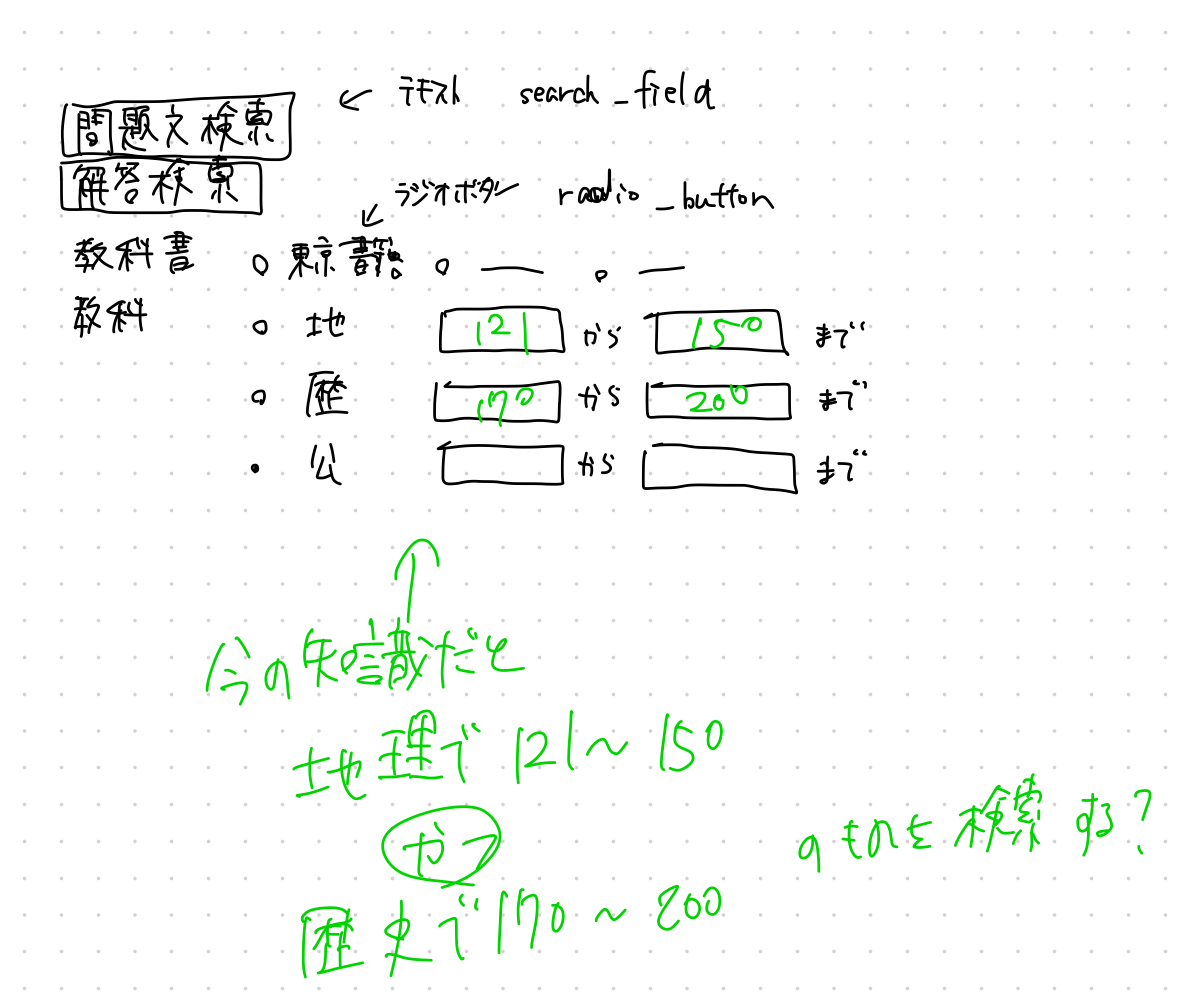 問題文検索 ← テキスト search_field
解答検索
ラジオボタン radio_button
教科書 東京書籍
教科 地 121 から 150 まで
歴 170 から 200 まで
公 から まで
今の知識だと
地理で 121〜150
かつ
のものを検索する?
歴史で170〜200